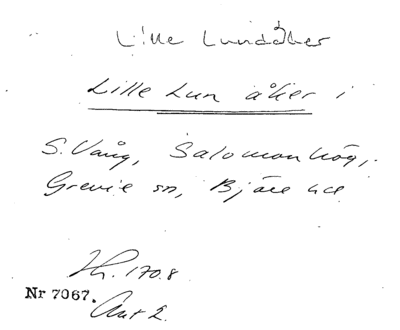 Lille Lundåker
Lille Lun åker i
S. Vång, Salomonhög,
Grevie sn, Bjäre hd
Jh. 170.8
Nr 7067.
Ant 2.